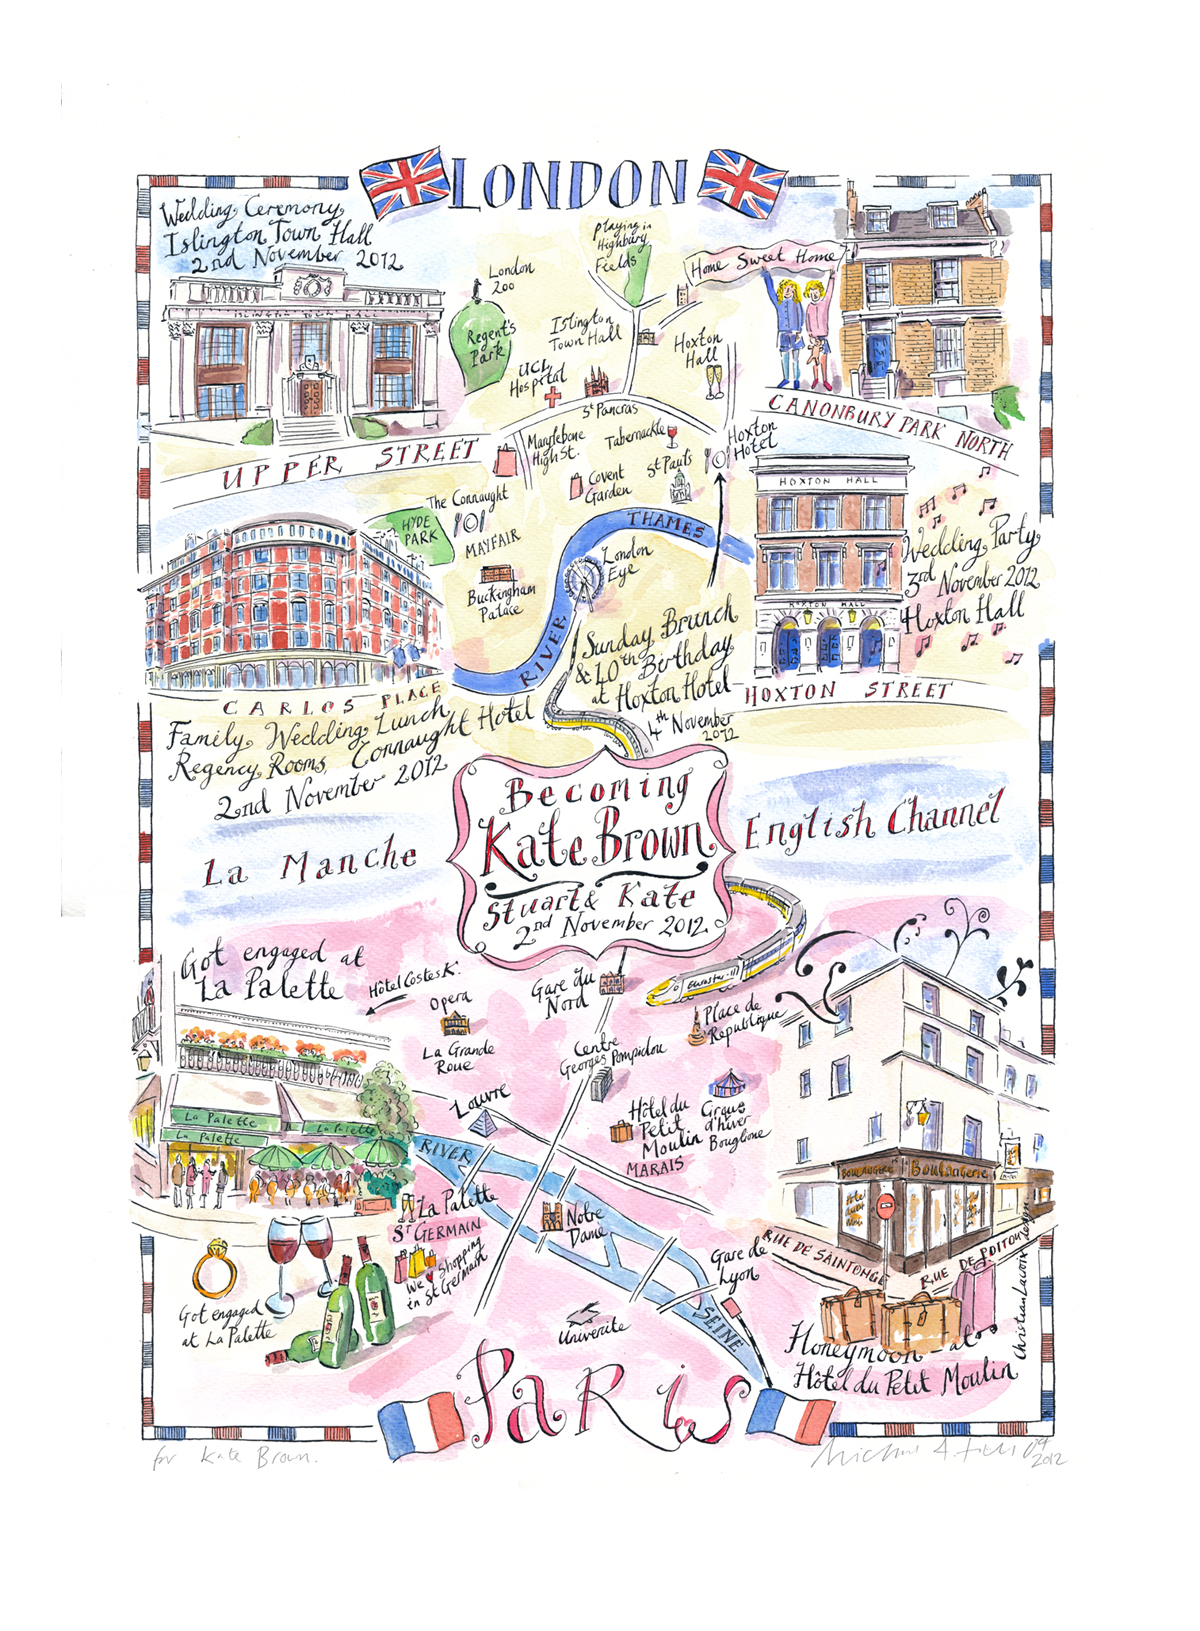 LONDON
Wedding Ceremony
Islington Town Hall
2nd November 2012
ISLINGTON TOWN HALL
UPPER STREET
London
Zoo
Regent's
Park
playing in
Highbury
Fields
Islington
Town Hall
UCL
Hospital
St Pancras
Hoxton
Hall
Home Sweet Home
CANONBURY PARK NORTH
Marylebone
High St.
Tabernackle
Covent
Garden
St Pauls
Hoxton
Hotel
The Connaught
HYDE
PARK
MAYFAIR
Buckingham
Palace
RIVER
THAMES
London
Eye
HOXTON HALL
HOXTON HALL
Wedding Party
3rd November 2012
Hoxton Hall
HOXTON STREET
Sunday Brunch
& 40th Birthday
at Hoxton Hotel
4th November
2012
CARLOS PLACE
Family Wedding Lunch
Regency Rooms, Connaught Hotel
2nd November 2012
La Manche
English Channel
Becoming
Kate Brown
Stuart & Kate
2nd November 2012
Got engaged at
La Palette
Hôtel Costes K.
Opera
La Grande
Roue
Gare du
Nord
Eurostar
Place de
Republique
Centre
Georges Pompidou
Louvre
Hôtel du
Petit
Moulin
MARAIS
Cirque
d'hiver
Bouglione
La Palette
La Palette
La Palette
RIVER
SEINE
La Palette
ST GERMAIN
We Shopping
in St Germain
Notre
Dame
Gare de
Lyon
Univercite
Boulangerie
Boulangerie
RUE DE SAINTONGE
RUE DE POITOU
Christian Lacroix design
Got engaged
at La Palette
Honeymoon at
Hôtel du Petit Moulin
PARIS
for Kate Brown.
2012